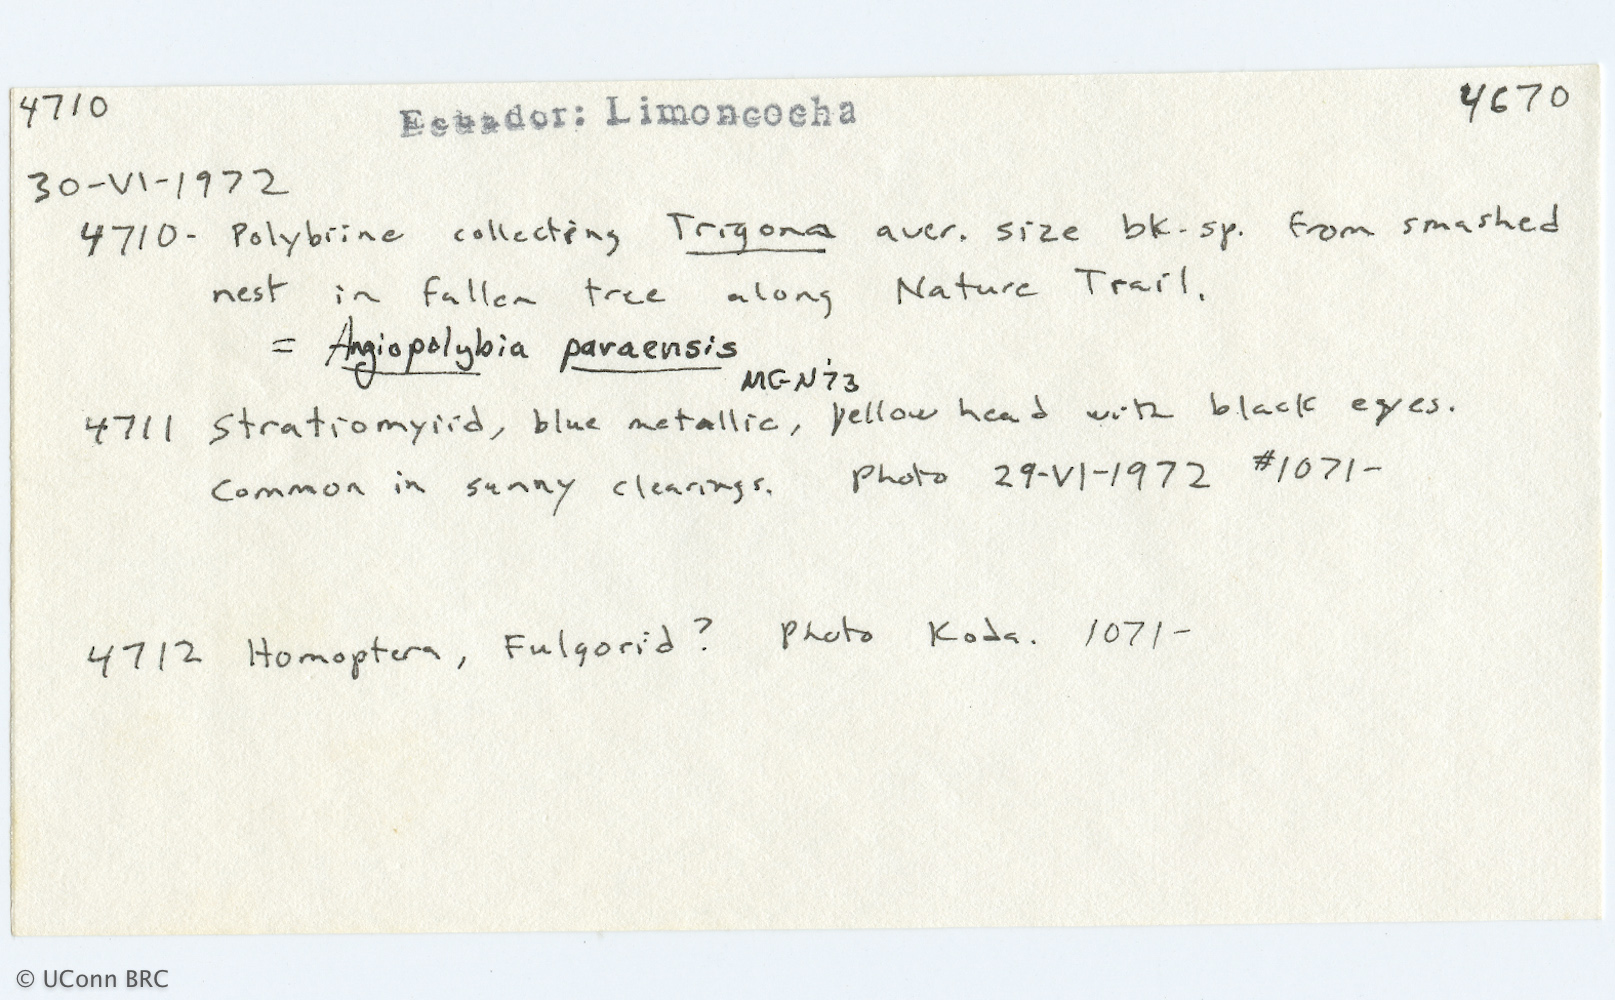 4710 Ecuador: Limoncocha 4670
30-VI-1972
4710- Polybiine collecting Trigona aver. size bk. sp. from smashed
nest in fallen tree along Nature Trail.
= Angiopolybia paraensis
MGN'73
4711 Stratiomyiid, blue metallic, yellow head with black eyes.
Common in sunny clearings. Photo 29-VI-1972 #1071-
4712 Homoptera, Fulgorid? Photo Koda. 1071-
© UConn BRC